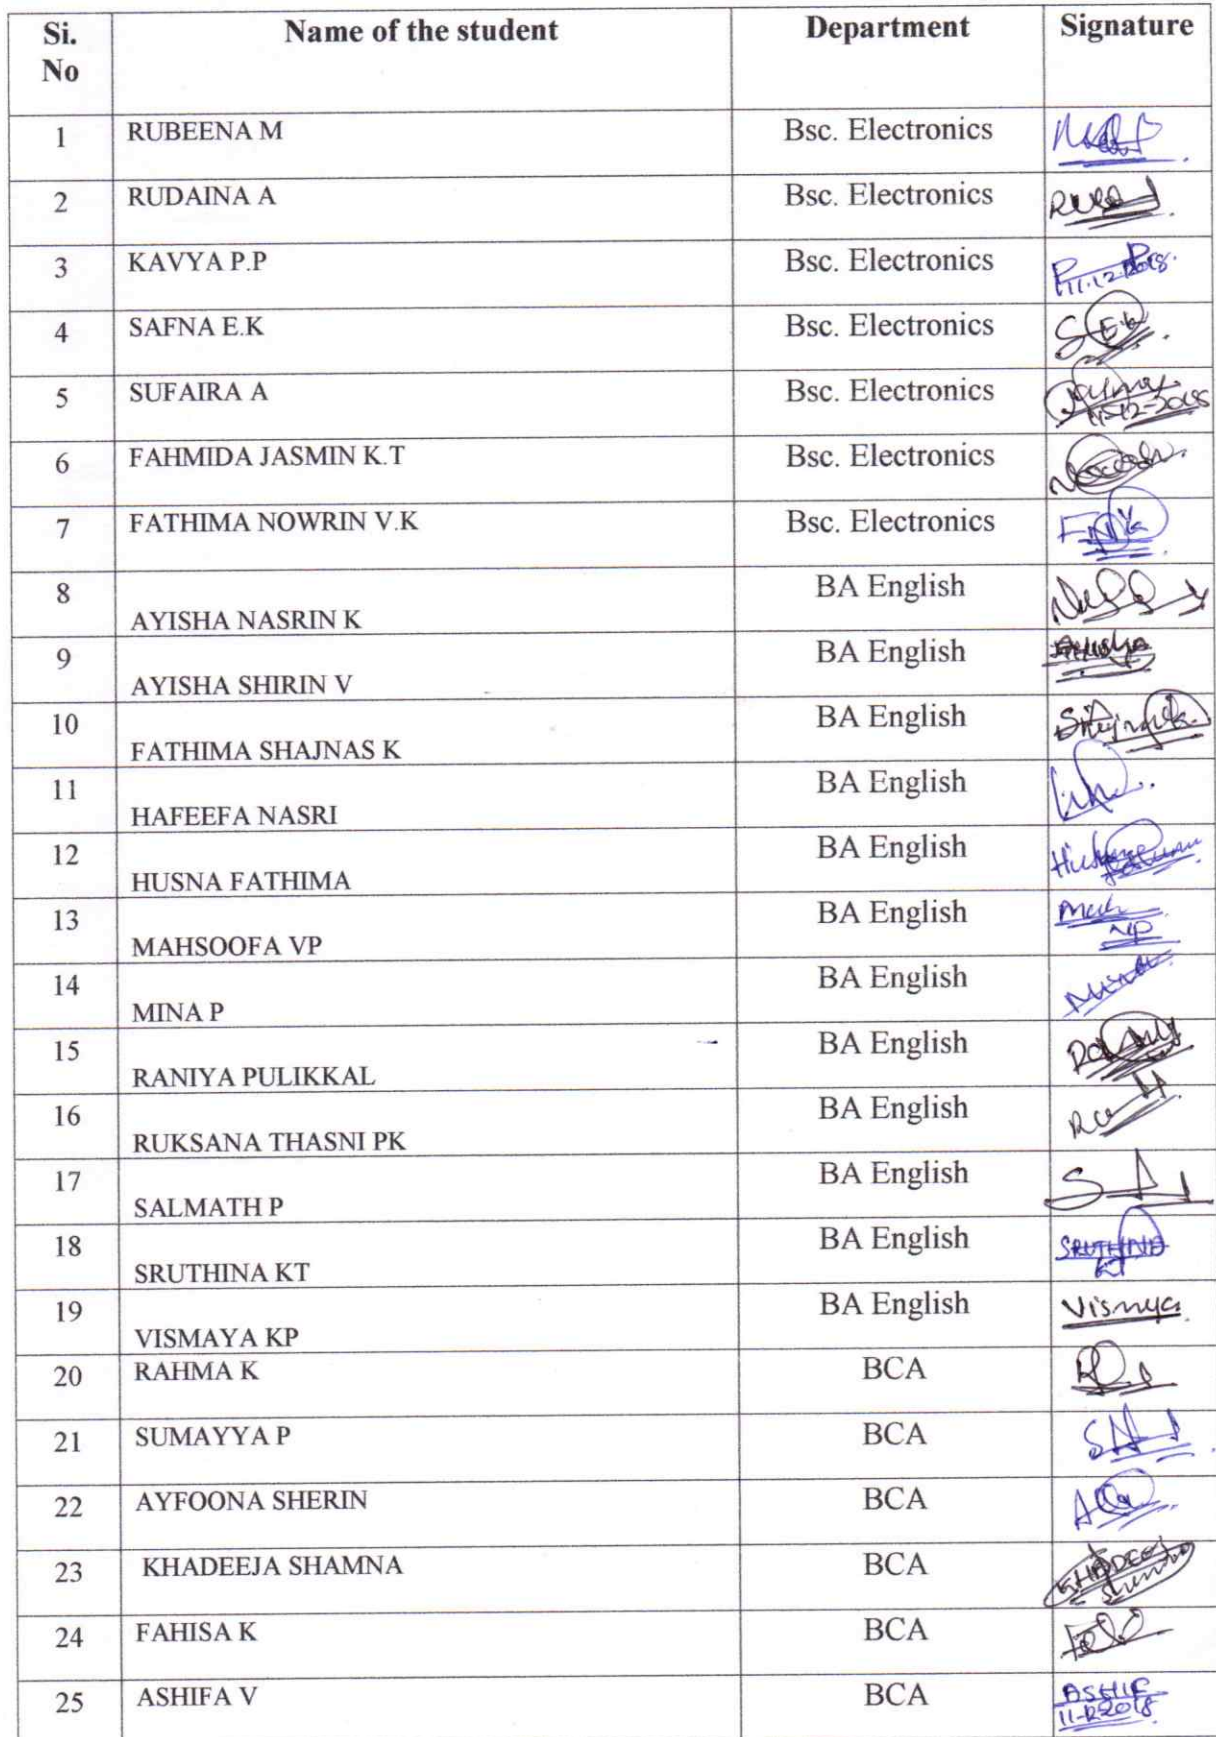 Si. No Name of the student Department Signature
1 RUBEENA M Bsc. Electronics
2 RUDAINA A Bsc. Electronics
3 KAVYA P.P Bsc. Electronics 11.12.2018.
4 SAFNA E.K Bsc. Electronics S E.K
5 SUFAIRA A Bsc. Electronics 11-12-2018
6 FAHMIDA JASMIN K.T Bsc. Electronics
7 FATHIMA NOWRIN V.K Bsc. Electronics
8 AYISHA NASRIN K BA English
9 AYISHA SHIRIN V BA English
10 FATHIMA SHAJNAS K BA English
11 HAFEEFA NASRI BA English
12 HUSNA FATHIMA BA English
13 MAHSOOFA VP BA English
14 MINA P BA English
15 RANIYA PULIKKAL BA English
16 RUKSANA THASNI PK BA English
17 SALMATH P BA English
18 SRUTHINA KT BA English SRUTHINA KT
19 VISMAYA KP BA English Vismya
20 RAHMA K BCA
21 SUMAYYA P BCA
22 AYFOONA SHERIN BCA
23 KHADEEJA SHAMNA BCA
24 FAHISA K BCA
25 ASHIFA V BCA ASHIF 11-12-2018